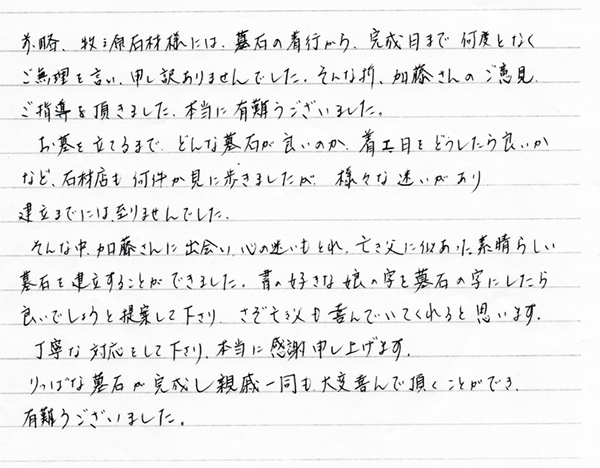 前略、牧之原石材様には、墓石の着行から、完成日まで何度となく
ご無理を言い、申し訳ありませんでした。そんな折、加藤さんのご意見
ご指導を頂きました、本当に有難うございました。
お墓を立てるまで、どんな墓石が良いのか、着工日をどうしたら良いか
など、石材店も何件か見に歩きましたが、様々な迷いがあり
建立までには至りませんでした。
そんな中、加藤さんに出会い、心の迷いもとれ、亡き父に似あった素晴らしい
墓石を建立することができました。書の好きな娘の字を墓石の字にしたら
良いでしょうと提案して下さり、さぞ亡き父も喜んでいてくれると思います。
丁寧な対応をして下さり、本当に感謝申し上げます。
りっぱな墓石が完成し親戚一同も、大変喜んで頂くことができ、
有難うございました。